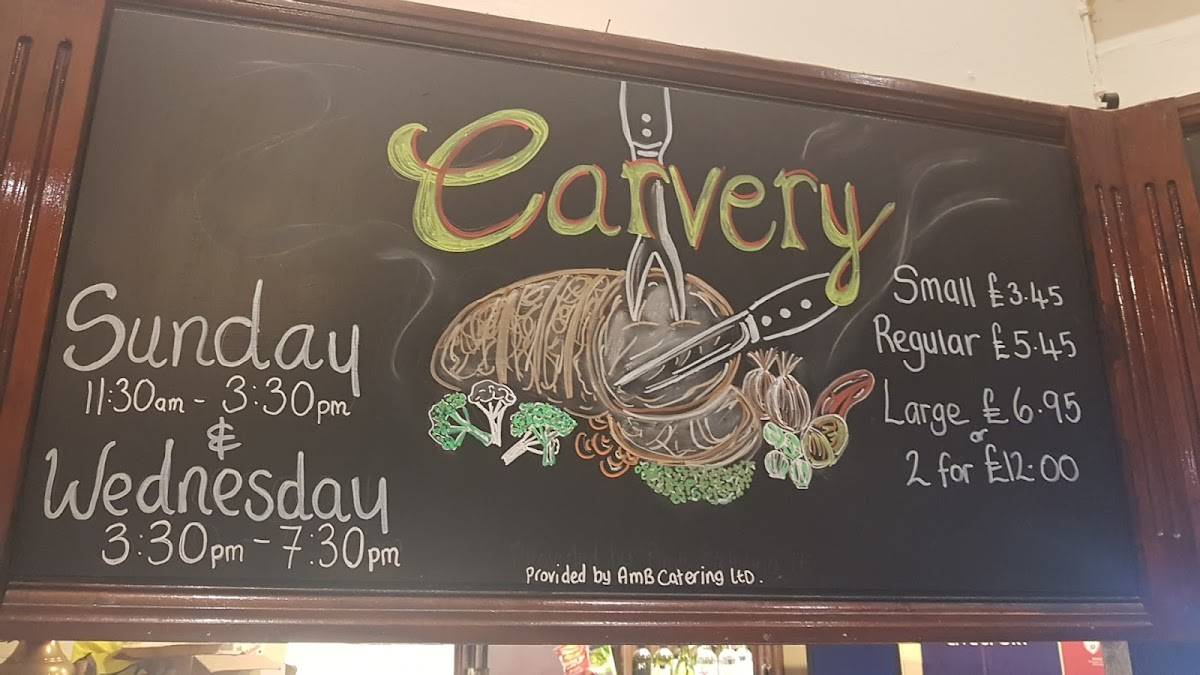 Carvery
Sunday
11:30am - 3:30pm
&
Wednesday
3:30pm - 7:30pm
Small £3.45
Regular £5.45
Large £6.95
or
2 for £12.00
Provided by AmB Catering LTD.